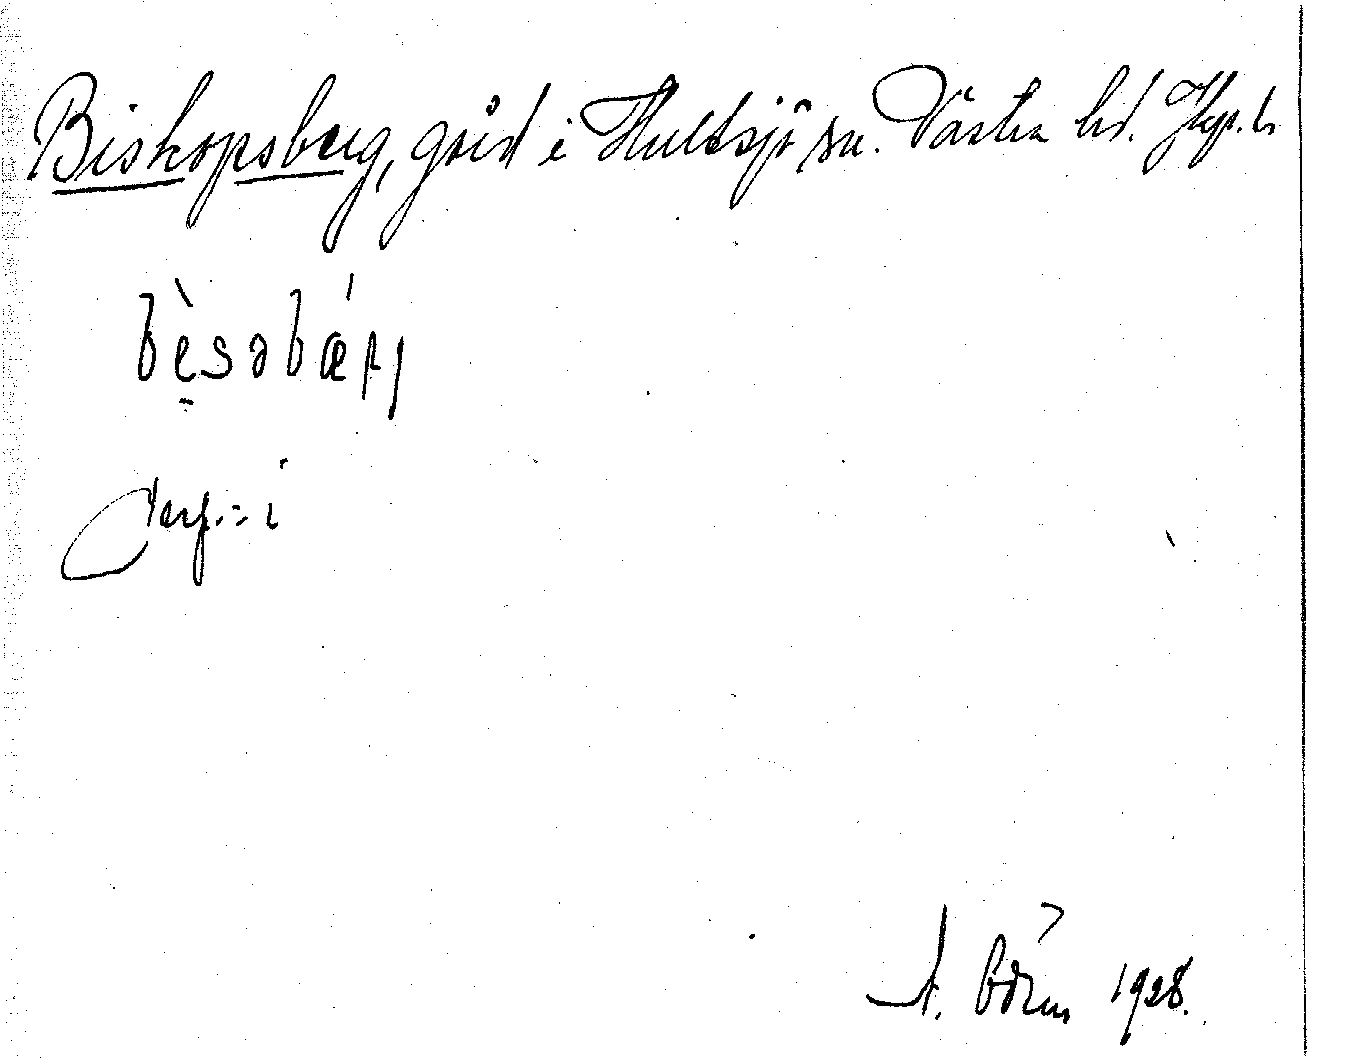 Bishopsberg, gård i Hultsjö sn. Västra hd. Jkp. l.
bèsəbǽrj
i
A. 1928.